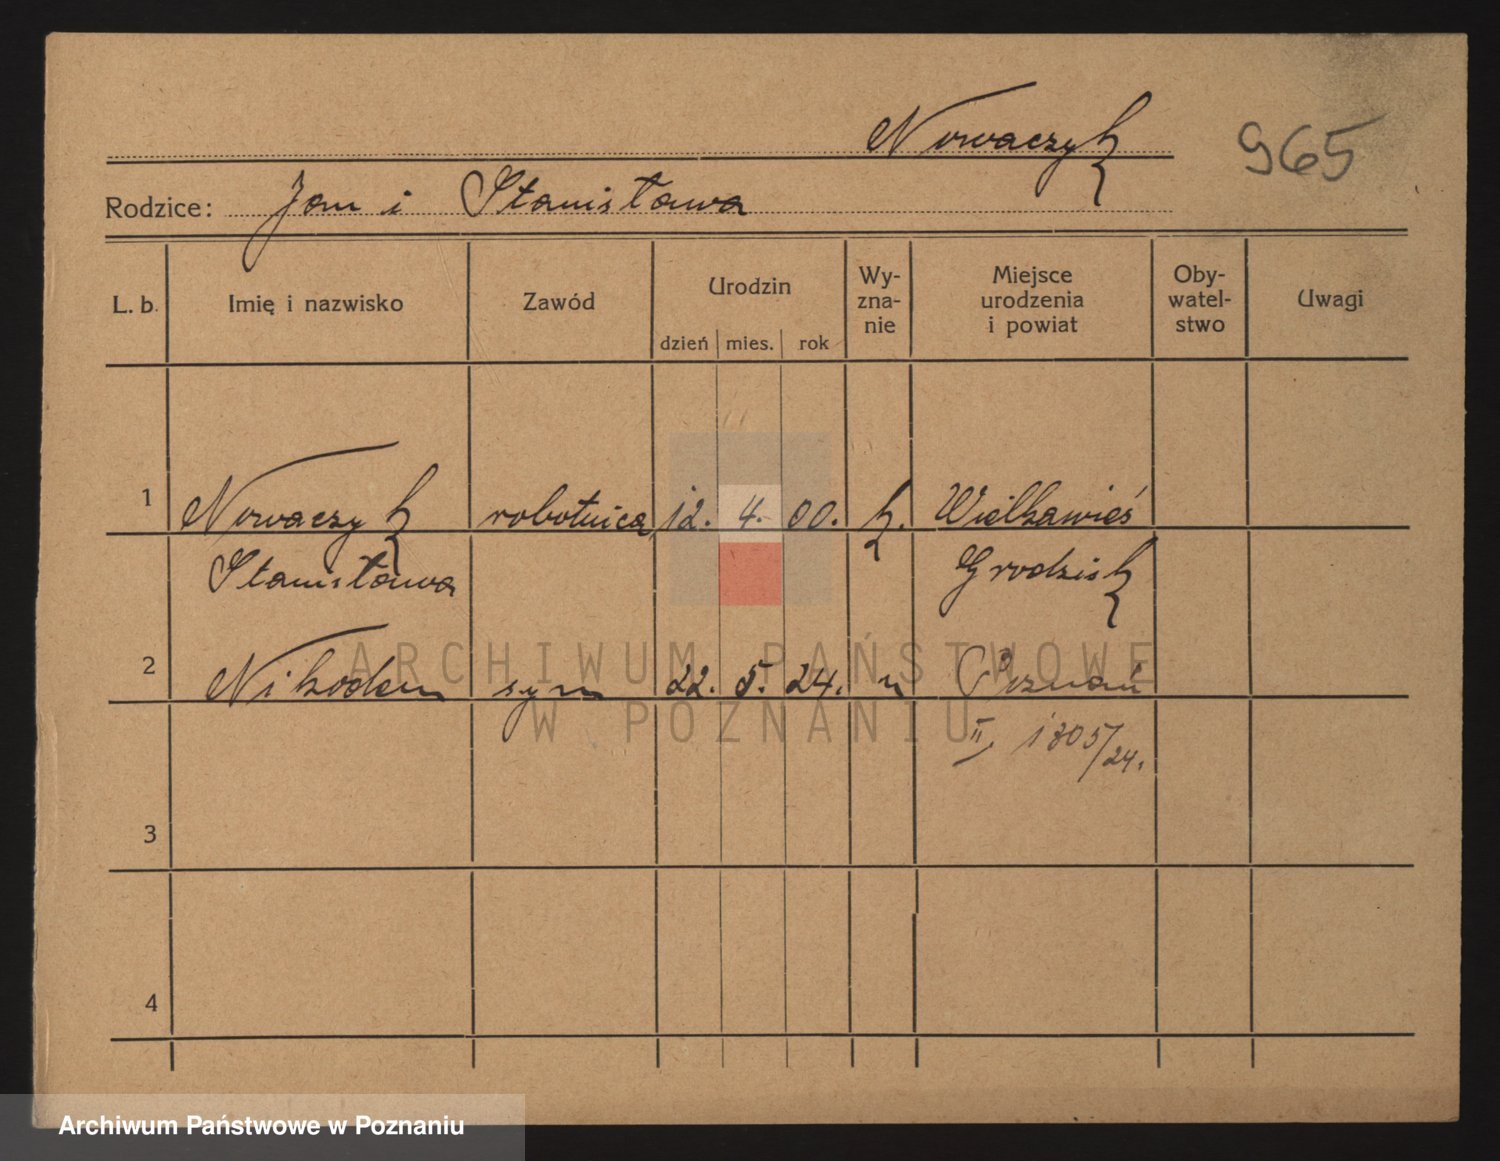 Nowaczyk 965
Rodzice: Jan i Stanisława
L. b. Imię i nazwisko Zawód Urodzin Wy-zna-nie Miejsce urodzenia i powiat Oby-watel-stwo Uwagi
dzień mies. rok
1 Nowaczyk robotnica 12. 4. 00. k. Wielkawieś
Stanisława Grodzisk
2 Nikodem syn 22. 5. 24. " Poznań
II, 1305/24.
3
4
ARCHIWUM PAŃSTWOWE
W POZNANIU
Archiwum Państwowe w Poznaniu